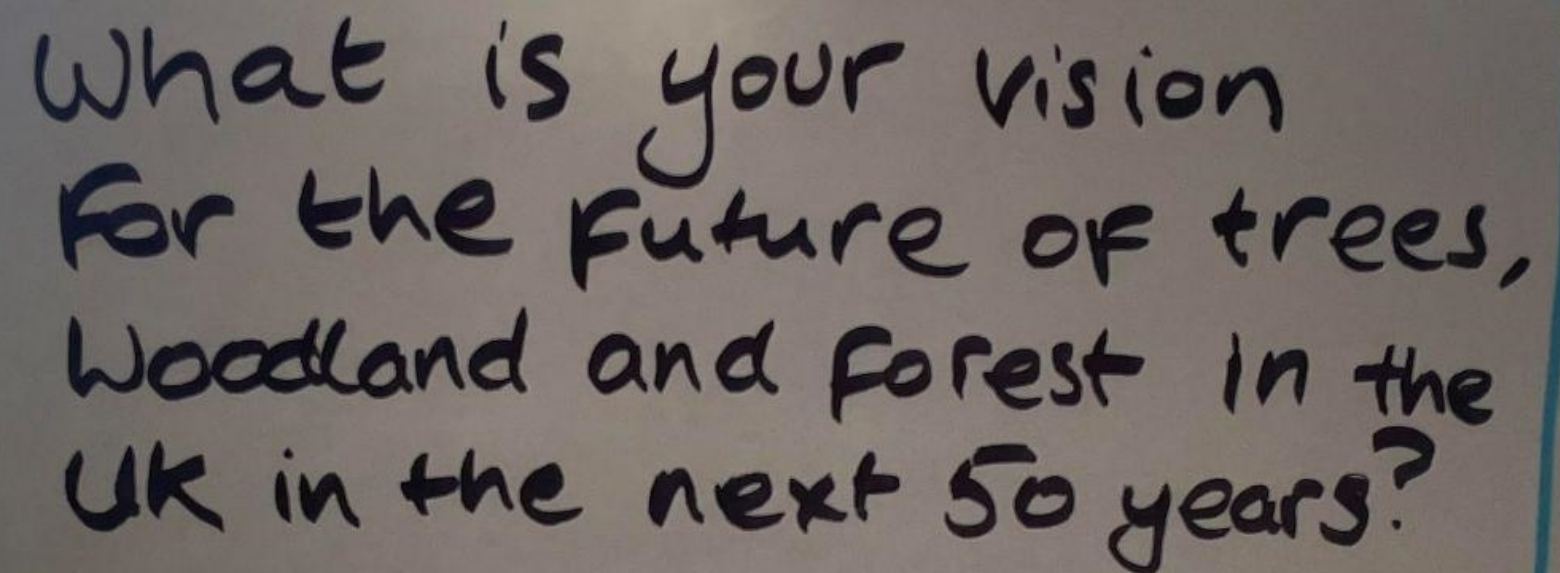 What is your vision
For the Future of trees,
Woodland and Forest in the
UK in the next 50 years?